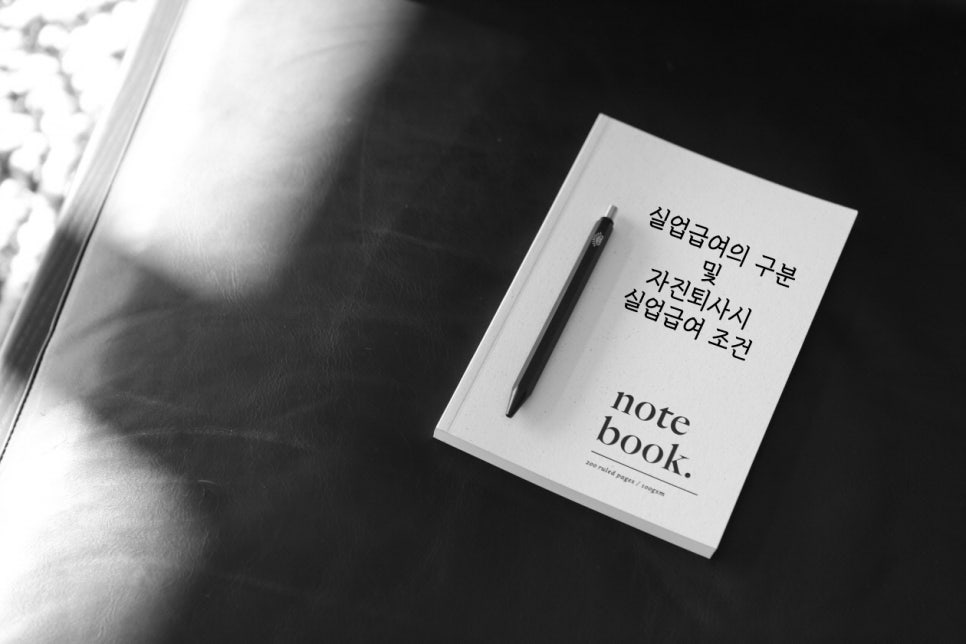 실업급여의 구분
및
자진퇴사시
실업급여 조건
note
book.
200 ruled pages / 100gsm